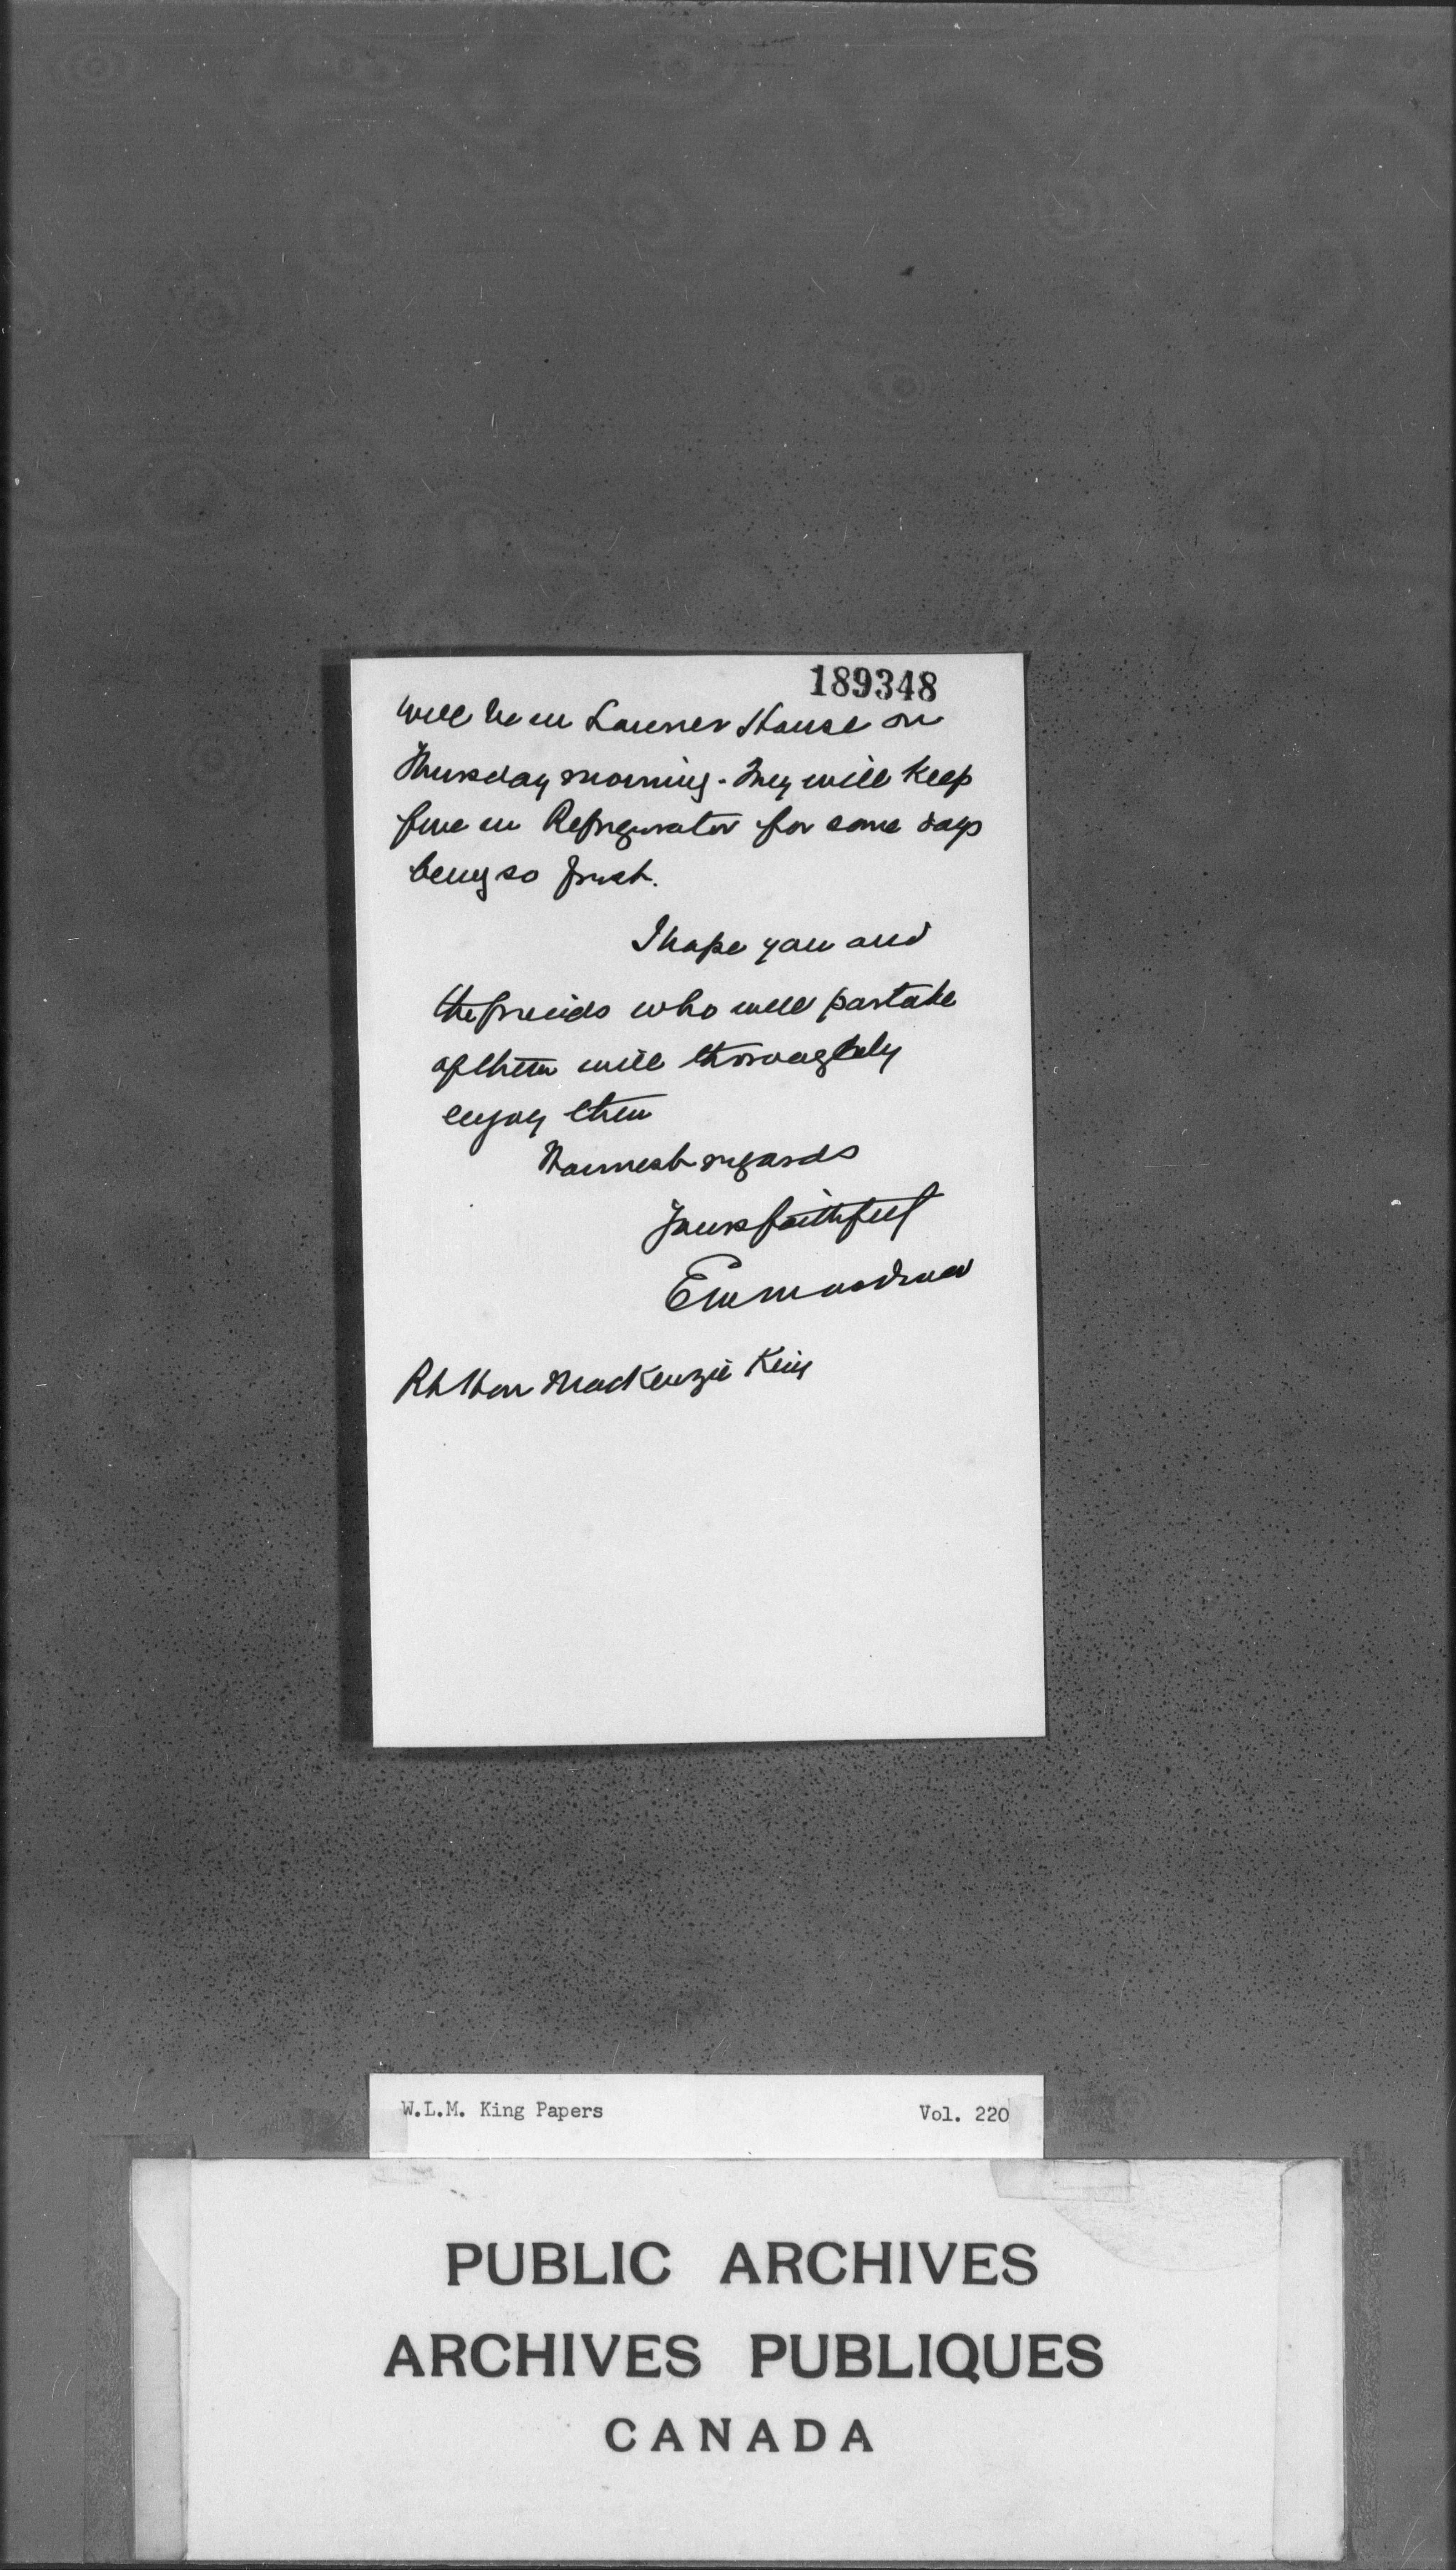 189348
will be in Laurier House on
Thursday morning. They will keep
fine in Refrigerator for some days
being so fresh.
I hope you and
the friends who will partake
of them will thoroughly
enjoy them
Warmest regards
Yours faithful
Rt Hon MacKenzie King
W.L.M. King Papers Vol. 220
PUBLIC ARCHIVES
ARCHIVES PUBLIQUES
CANADA